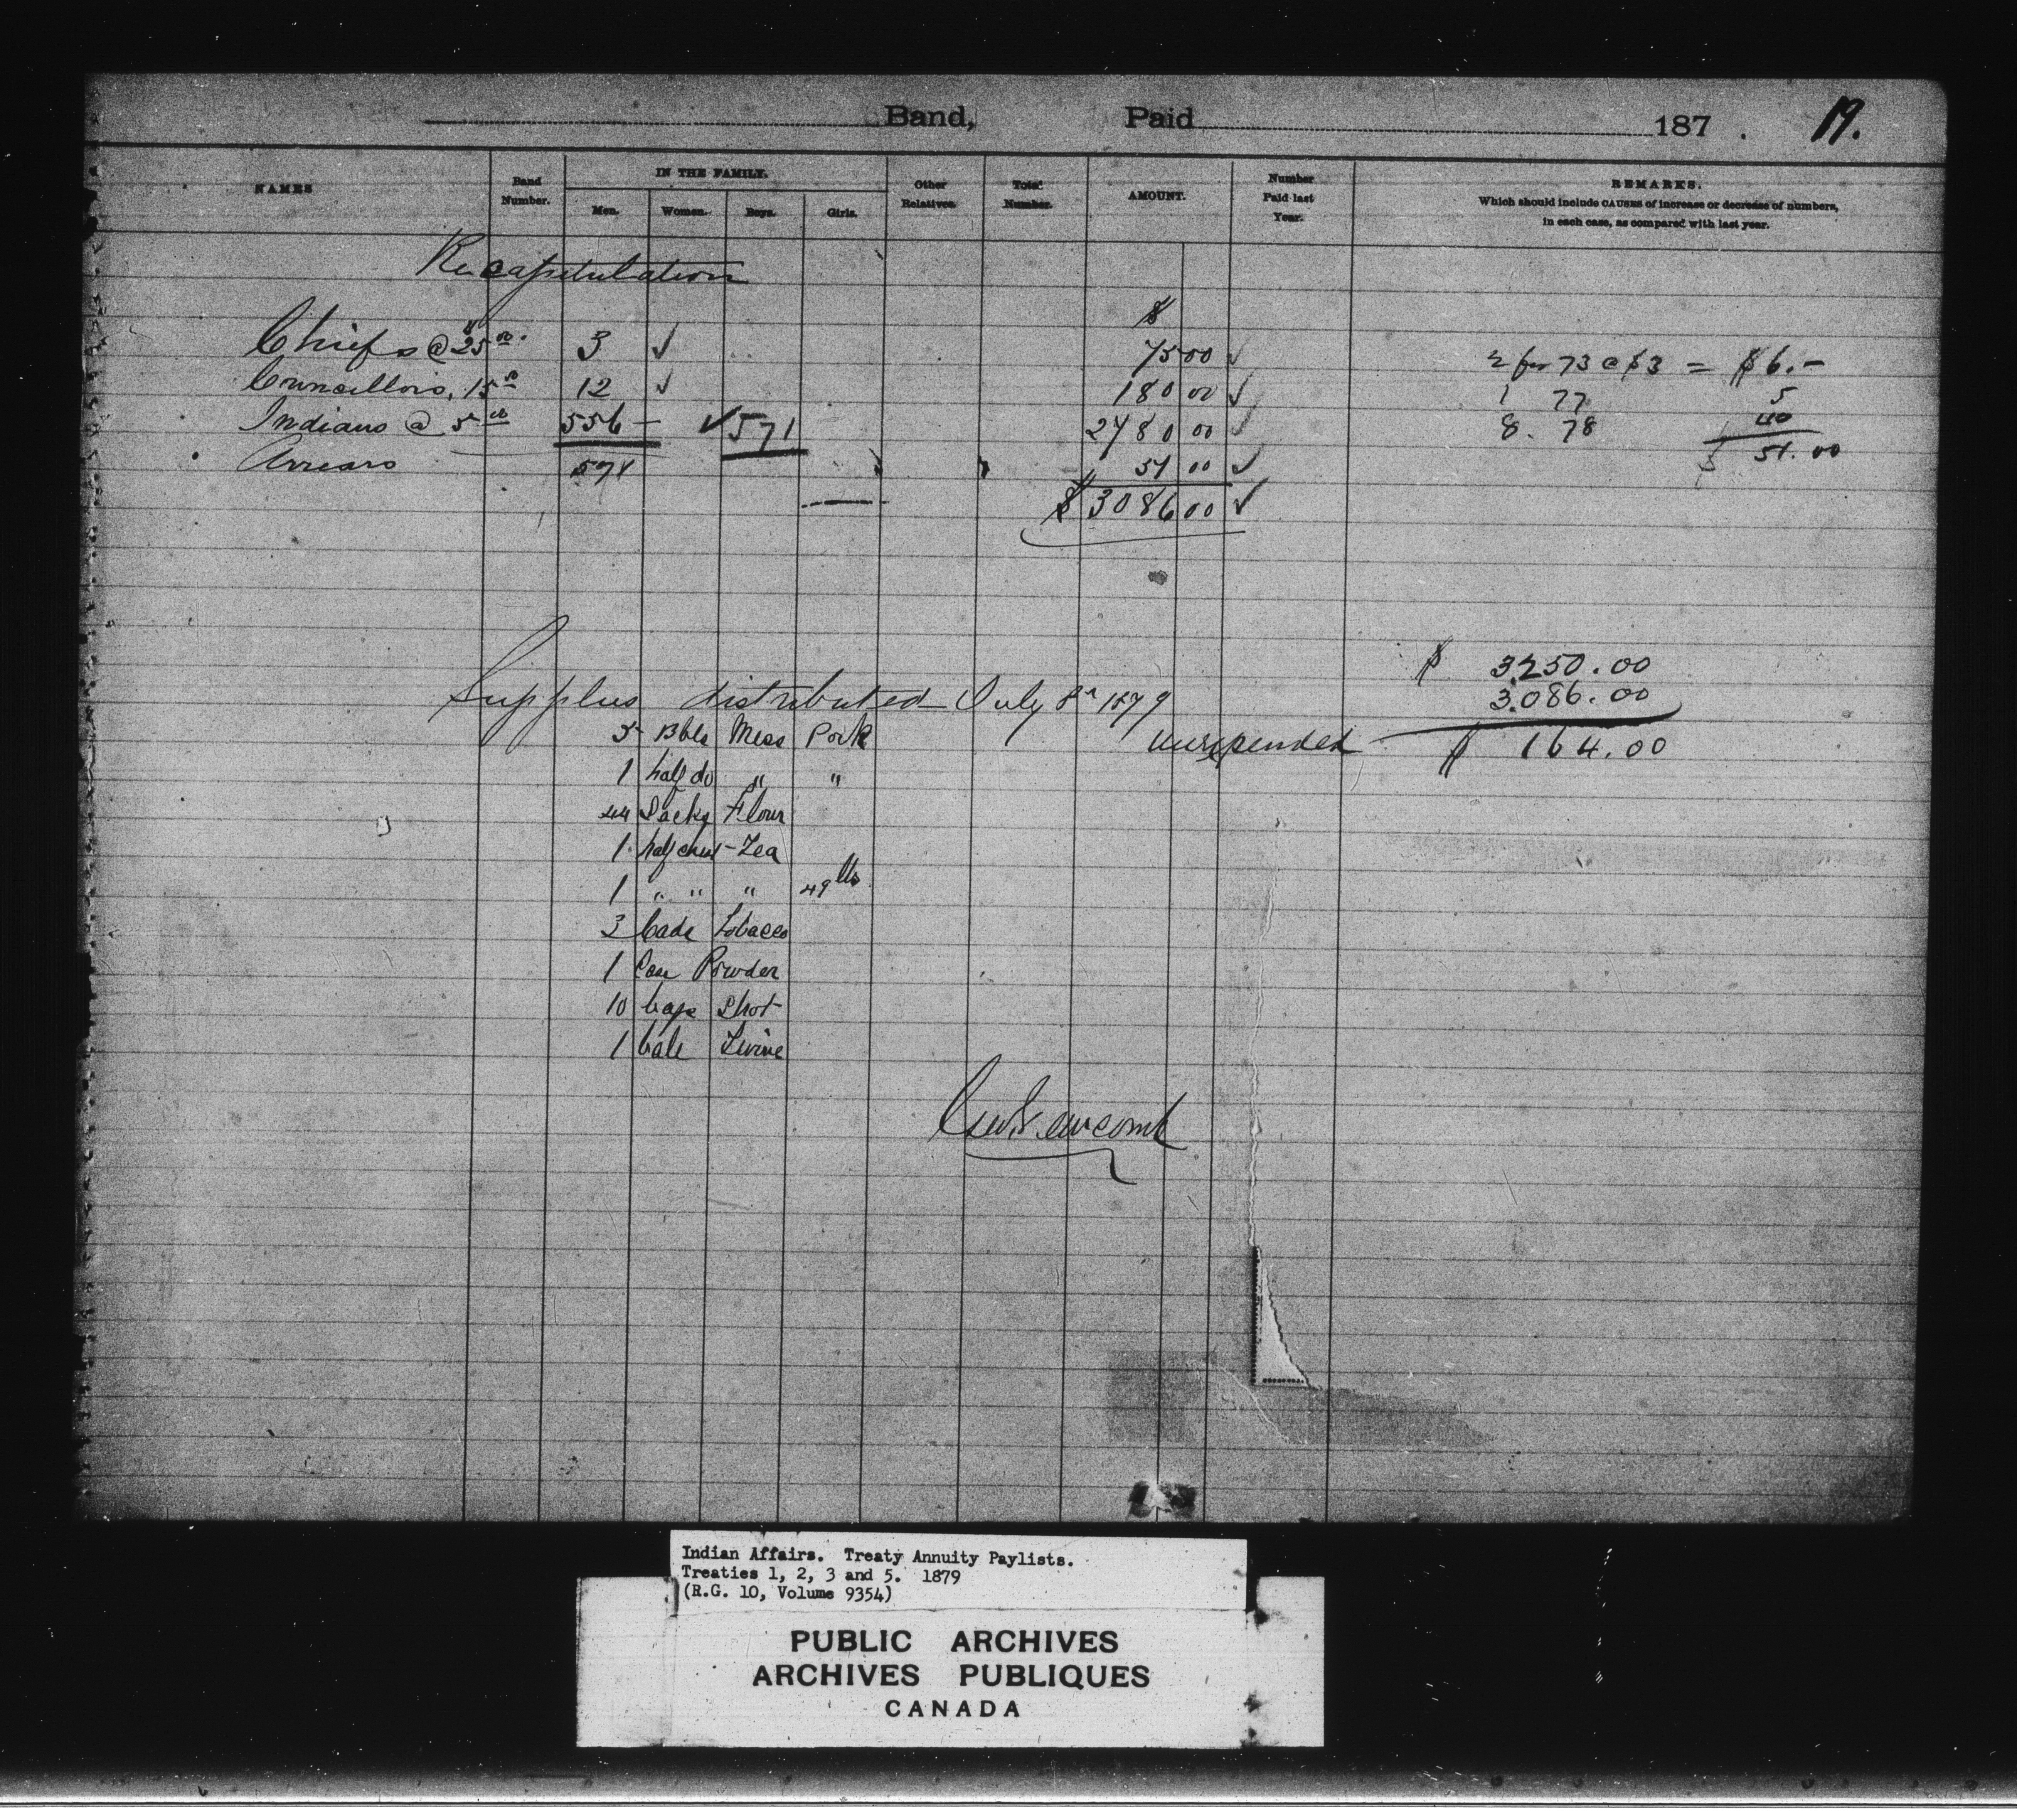 Band, Paid 187 . 19.
NAMES Band Number. IN THE FAMILY. Men. Women. Boys. Girls. Other Relatives. Total Number. AMOUNT. Number Paid last Year. REMARKS.
Which should include CAUSES of increase or decrease of numbers,
in each case, as compared with last year.
Recapitulation
$
Chiefs @ $25 00. 3 ✓ 75 00 ✓ 2 for 73 @ $3 = $6.-
Councillors, 15 00 12 ✓ 180 00 ✓ 1 77 5
Indians @ 5 00 556 - ✓ 571 2780 00 ✓ 8. 78 40
Arrears 571 51 00 ✓ $ 51.00
$ 3086 00 ✓
$ 3,250.00
Supplies distributed July 8th 1879 3,086.00
5 Bbls Mess Pork unexpended $ 164.00
1 half do " "
44 Sacks Flour
1 half chest Tea
1 " " " 49 lbs
3 Cads Tobacco
1 Case Powder
10 bags Shot
1 bale Twine
Geo Newcomb
Indian Affairs. Treaty Annuity Paylists.
Treaties 1, 2, 3 and 5. 1879
(R.G. 10, Volume 9354)
PUBLIC ARCHIVES
ARCHIVES PUBLIQUES
CANADA